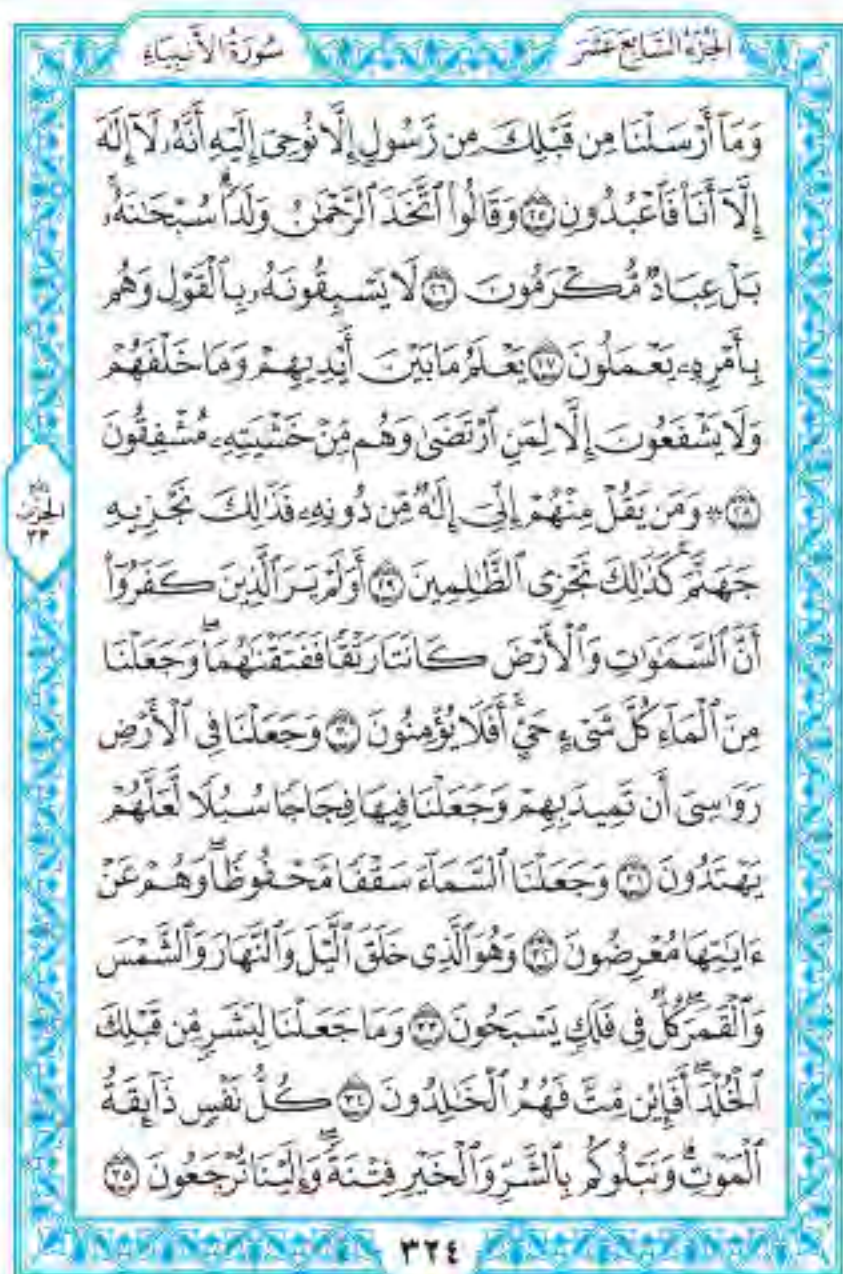 الجزء السابع عشر
سورة الأنبياء
وَمَآ أَرْسَلْنَا مِن قَبْلِكَ مِن رَّسُولٍ إِلَّا نُوحِىٓ إِلَيْهِ أَنَّهُۥ لَآ إِلَٰهَ
إِلَّآ أَنَا۠ فَٱعْبُدُونِ ٢٥ وَقَالُوا۟ ٱتَّخَذَ ٱلرَّحْمَٰنُ وَلَدًا ۗ سُبْحَٰنَهُۥ ۚ
بَلْ عِبَادٌ مُّكْرَمُونَ ٢٦ لَا يَسْبِقُونَهُۥ بِٱلْقَوْلِ وَهُم
بِأَمْرِهِۦ يَعْمَلُونَ ٢٧ يَعْلَمُ مَا بَيْنَ أَيْدِيهِمْ وَمَا خَلْفَهُمْ
وَلَا يَشْفَعُونَ إِلَّا لِمَنِ ٱرْتَضَىٰ وَهُم مِّنْ خَشْيَتِهِۦ مُشْفِقُونَ
٢٨ ۞ وَمَن يَقُلْ مِنْهُمْ إِنِّىٓ إِلَٰهٌ مِّن دُونِهِۦ فَذَٰلِكَ نَجْزِيهِ
جَهَنَّمَ ۚ كَذَٰلِكَ نَجْزِى ٱلظَّٰلِمِينَ ٢٩ أَوَلَمْ يَرَ ٱلَّذِينَ كَفَرُوٓا۟
أَنَّ ٱلسَّمَٰوَٰتِ وَٱلْأَرْضَ كَانَتَا رَتْقًا فَفَتَقْنَٰهُمَا ۖ وَجَعَلْنَا
مِنَ ٱلْمَآءِ كُلَّ شَىْءٍ حَىٍّ ۖ أَفَلَا يُؤْمِنُونَ ٣٠ وَجَعَلْنَا فِى ٱلْأَرْضِ
رَوَٰسِىَ أَن تَمِيدَ بِهِمْ وَجَعَلْنَا فِيهَا فِجَاجًا سُبُلًا لَّعَلَّهُمْ
يَهْتَدُونَ ٣١ وَجَعَلْنَا ٱلسَّمَآءَ سَقْفًا مَّحْفُوظًا ۖ وَهُمْ عَنْ
ءَايَٰتِهَا مُعْرِضُونَ ٣٢ وَهُوَ ٱلَّذِى خَلَقَ ٱلَّيْلَ وَٱلنَّهَارَ وَٱلشَّمْسَ
وَٱلْقَمَرَ ۖ كُلٌّ فِى فَلَكٍ يَسْبَحُونَ ٣٣ وَمَا جَعَلْنَا لِبَشَرٍ مِّن قَبْلِكَ
ٱلْخُلْدَ ۖ أَفَإِي۟ن مِّتَّ فَهُمُ ٱلْخَٰلِدُونَ ٣٤ كُلُّ نَفْسٍ ذَآئِقَةُ
ٱلْمَوْتِ ۗ وَنَبْلُوكُم بِٱلشَّرِّ وَٱلْخَيْرِ فِتْنَةً ۖ وَإِلَيْنَا تُرْجَعُونَ ٣٥
الحزب
٣٣
٣٢٤